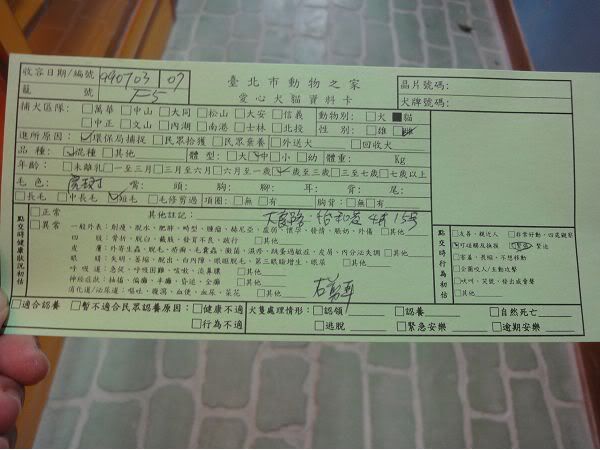 收容日期/編號 990703 07 臺北市動物之家 晶片號碼:
籠 號 F5 愛心犬貓資料卡 犬牌號碼:
捕犬區隊: □萬華 □中山 □大同 □松山 □大安 □信義 動物別: □犬 ■貓
□中正 □文山 □內湖 □南港 □士林 □北投 性 別: □雄
進所原因: ☑環保局捕捉 □民眾拾獲 □民眾棄養 □外送犬 □回收犬
品 種: ☑混種 □其他 體 型: □大 ☑中 □小 □幼 體重: Kg
年齡: □未離乳 □一至三月 □三至六月 □六月至一歲 ☑一歲至三歲 □三至七歲 □七歲以上
毛 色: 虎斑 嘴: 頭: 胸: 腳: 耳: 背: 尾:
□長毛 □中長毛 ☑短毛 □毛修剪過 項圈: □無 □有 胸背: □無 □有
點交時健康狀況初估 □正常 其他註記:
□異常 一般外表: 削瘦、脫水、肥胖、畸型、腫瘤、赫尼亞、虛弱、懷孕、發情、脹奶、外傷 □其他
四 肢: 骨折、脫臼、截肢、發育不良、跛行 □其他
皮 膚:
眼 睛: 失明、萎縮、脫出、白內障、眼眶脫毛、第三眼瞼增生、眼屎 □其他
呼吸道: 急促、呼吸困難、咳嗽、流鼻膿 □其他
神經症狀: 抽搐、偏癱、半癱、昏迷、全癱 □其他
消化道/泌尿道: 嘔吐、腹瀉、血便、血尿、菜花 □其他
右剪耳
點交時行為初估 □友善、親近人 □非常好動、四處觀察
☑可碰觸及撫摸 緊迫
□害羞、畏縮、不想移動
□企圖咬人/主動攻擊
□吠叫、哭號、發出威脅聲
□其他
□適合認養 □暫不適合民眾認養原因: □健康不適 犬隻處理情形: □認領 □認養 □自然死亡
□行為不適 □逃脫 □緊急安樂 □逾期安樂